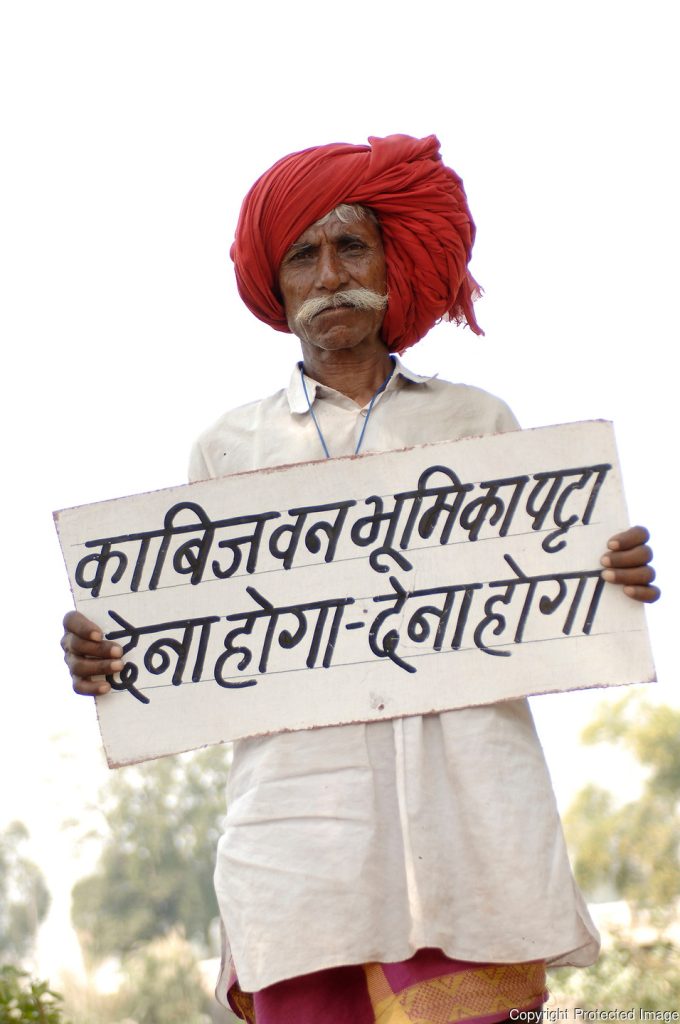 काबिज वन भूमि का पट्टा
देना होगा - देना होगा
Copyright Protected Image